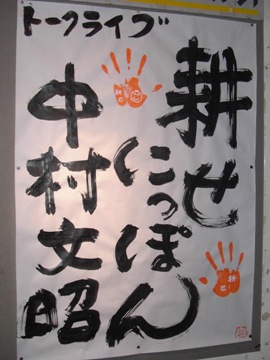 トークライブ
耕せ
にっぽん
中村文昭